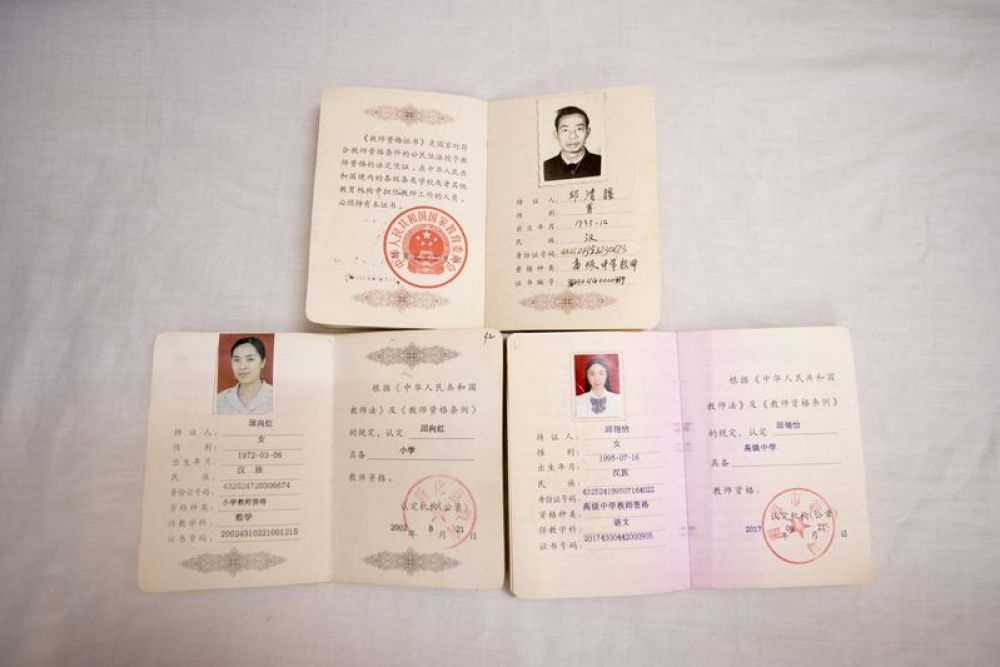 《教师资格证书》是国家对符
合教师资格条件的公民依法授予教
师资格的法定凭证。在中华人民共
和国境内的各级各类学校或者其他
教育机构中担任教师工作的人员，
必须持有本证书。
中华人民共和国国家教育委员会
持 证 人：邱清
性 别：男
出生年月：
民 族：汉
身份证号码：
资格种类：高级中学教师
证书编号：
持 证 人：邱向红
性 别：女
出生年月：1972-03-06
民 族：汉 族
身份证号码：432524720306674
资格种类：小学教师资格
任教学科：数学
证书号码：20024310221001215
根据《中华人民共和国
教师法》及《教师资格条例》
的规定，认定 邱向红
具备 小学
教师资格。
认定机构(公章)
2002年 8 月 21 日
持 证 人：
性 别：女
出生年月：1995-07-16
民 族：汉族
身份证号码：432524199507164022
资格种类：高级中学教师资格
任教学科：语文
证书号码：20174300442000905
根据《中华人民共和国
教师法》及《教师资格条例》
的规定，认定
具备 高级中学
教师资格。
认定机构(公章)
2017 年 月 日